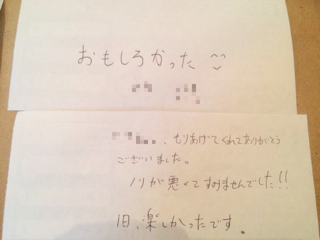 おもしろかった ^^
、もりあげてくれてありがとう
ございました。
ノリが悪くてすみませんでした!!
1日、楽しかったです。